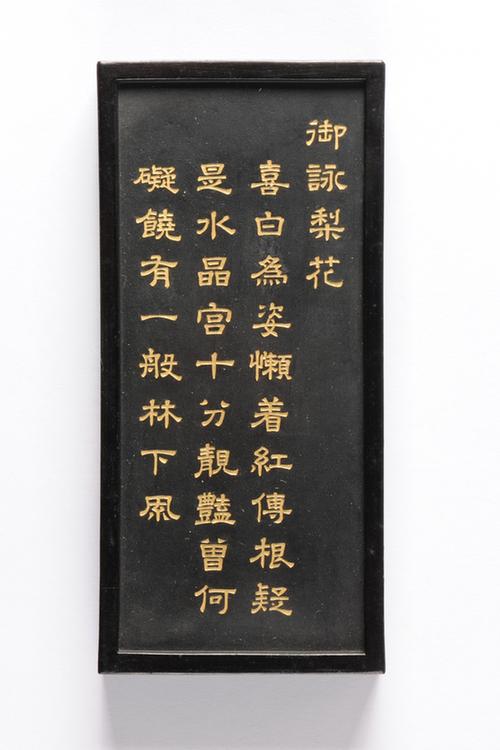 御詠梨花
喜白為姿懶着紅傳根疑
是水晶宮十分靚豔曽何
礙饒有一般林下風